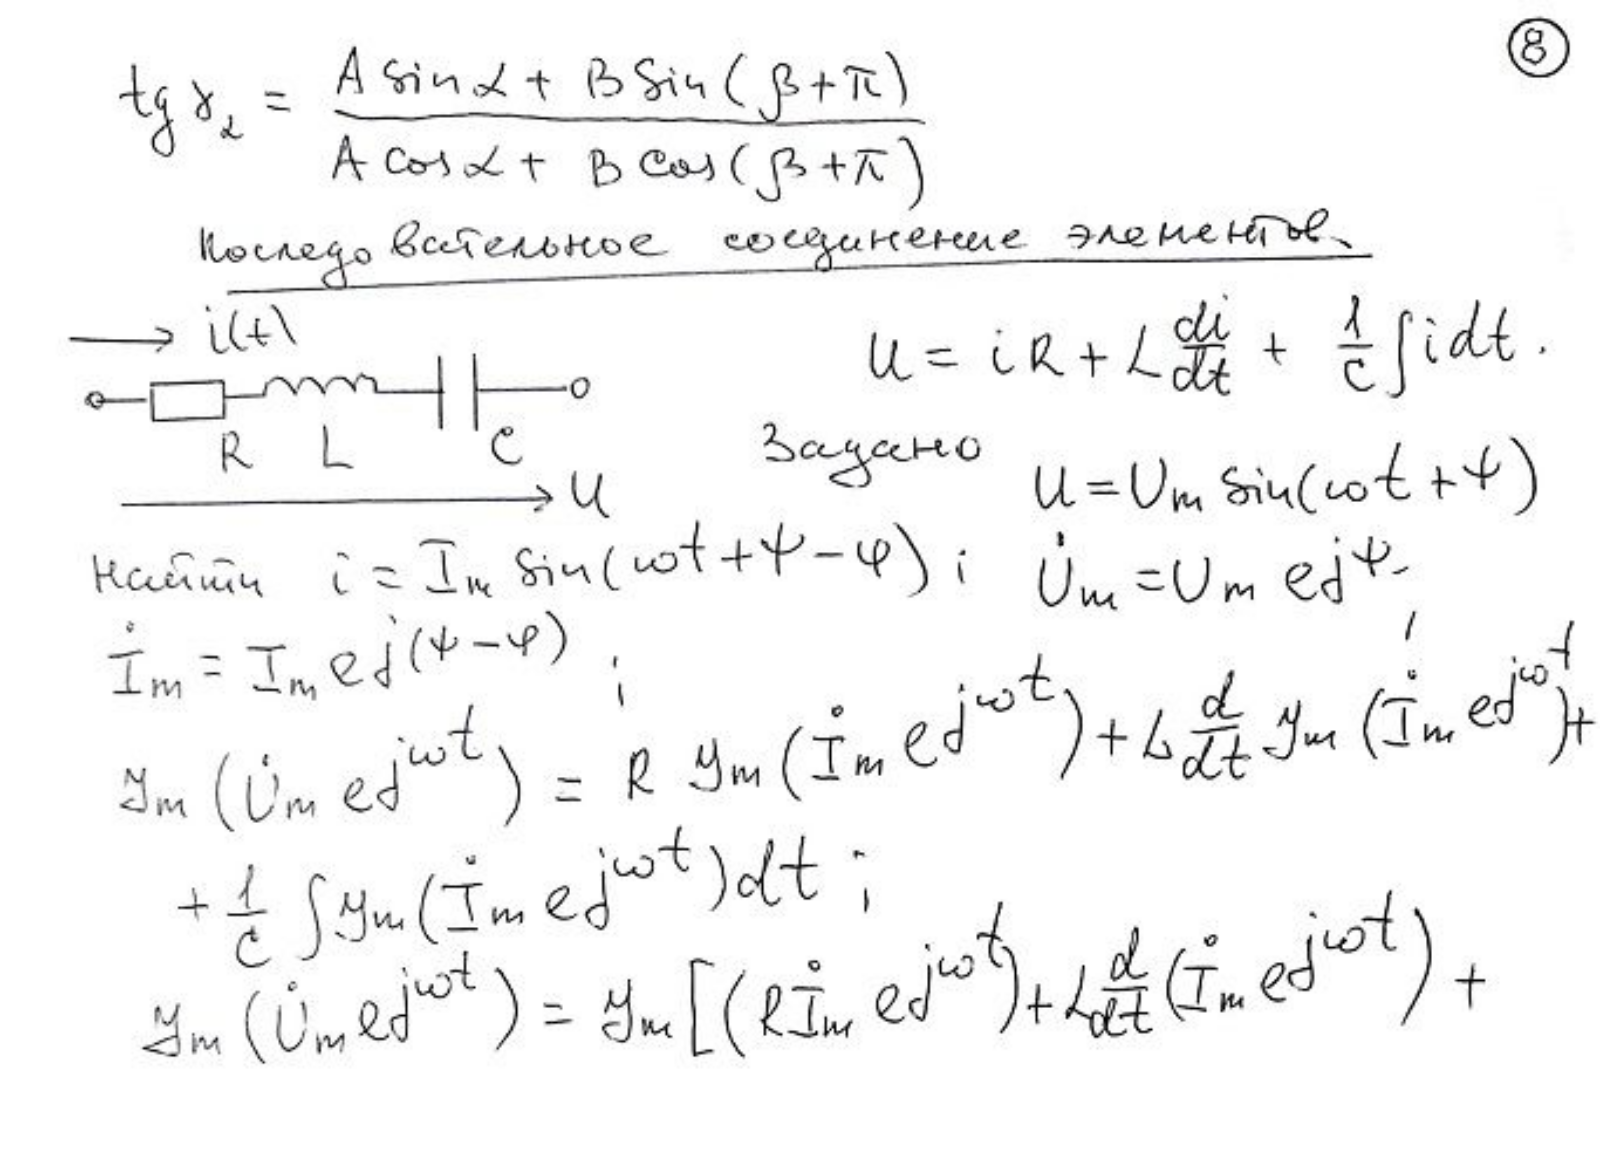 ⑧
tg γ₂ = (A sin α + B sin(β+π)) / (A cos α + B cos(β+π))
Последовательное соединение элементов.
i(t)
R L C
U
U = iR + L di/dt + 1/C ∫ i dt.
Задано
U = Um sin(ωt + ψ)
Найти i = Im sin(ωt + ψ − φ) ; U̇m = Um e^jψ ;
İm = Im e^j(ψ − φ) ;
Jm (U̇m e^jωt) = R Jm (İm e^jωt) + L d/dt Jm (İm e^jωt) +
+ 1/C ∫ Jm (İm e^jωt) dt ;
Jm (U̇m e^jωt) = Jm [(R İm e^jωt) + L d/dt (İm e^jωt) +